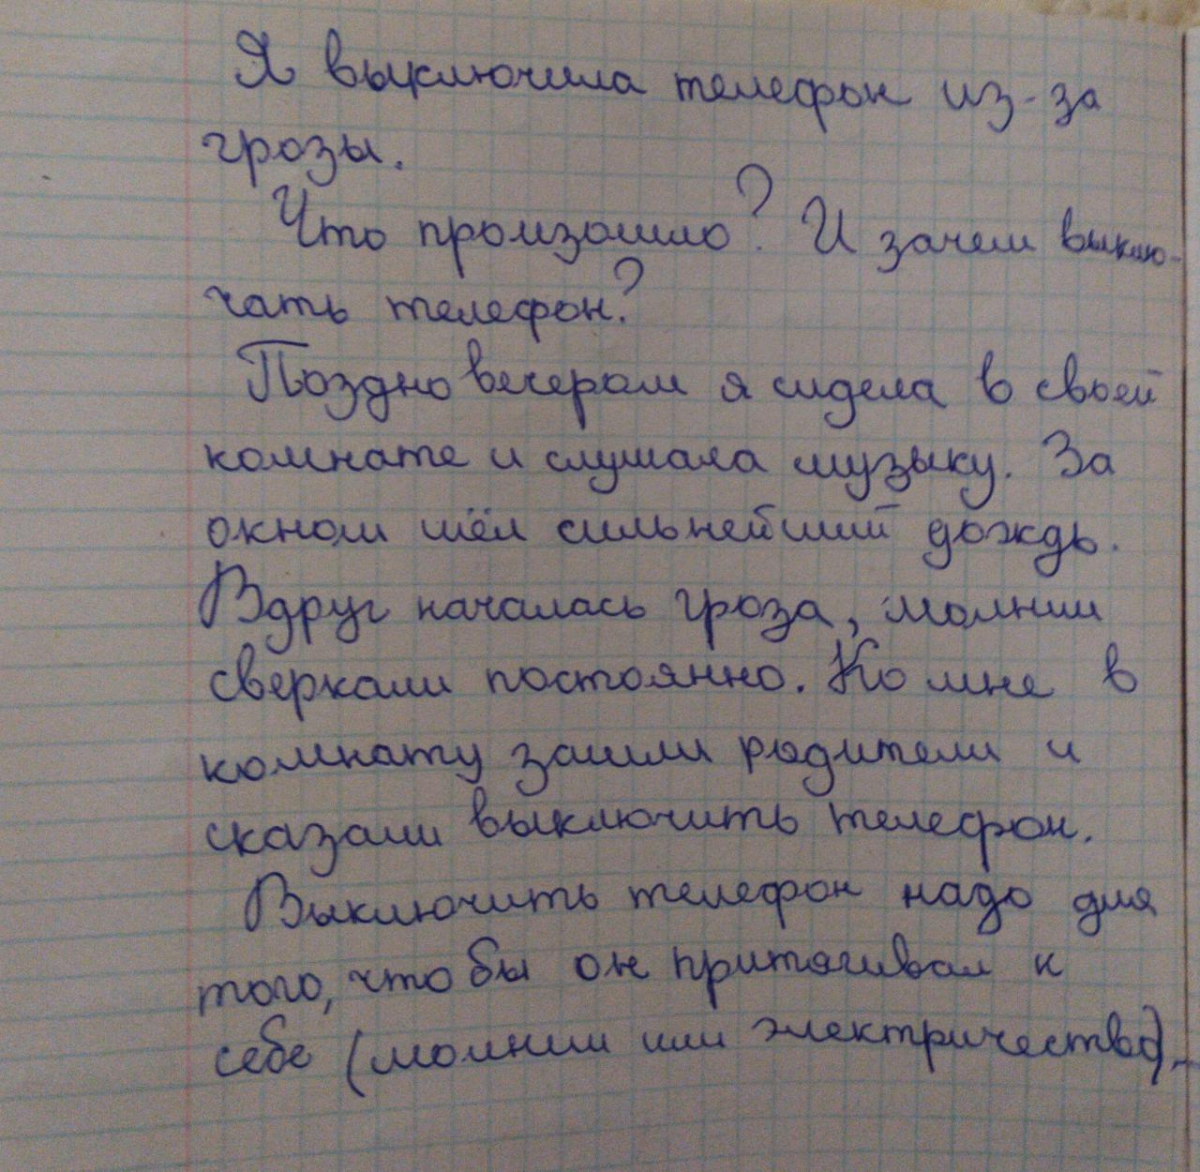 Я выключила телефон из-за
грозы.
Что произошло? И зачем выклю-
чать телефон?
Поздно вечером я сидела в своей
комнате и слушала музыку. За
окном шёл сильнейший дождь.
Вдруг началась гроза, молнии
сверкали постоянно. Ко мне в
комнату зашли родители и
сказали выключить телефон.
Выключить телефон надо для
того, что бы он притягивал к
себе (молнии или электричество).